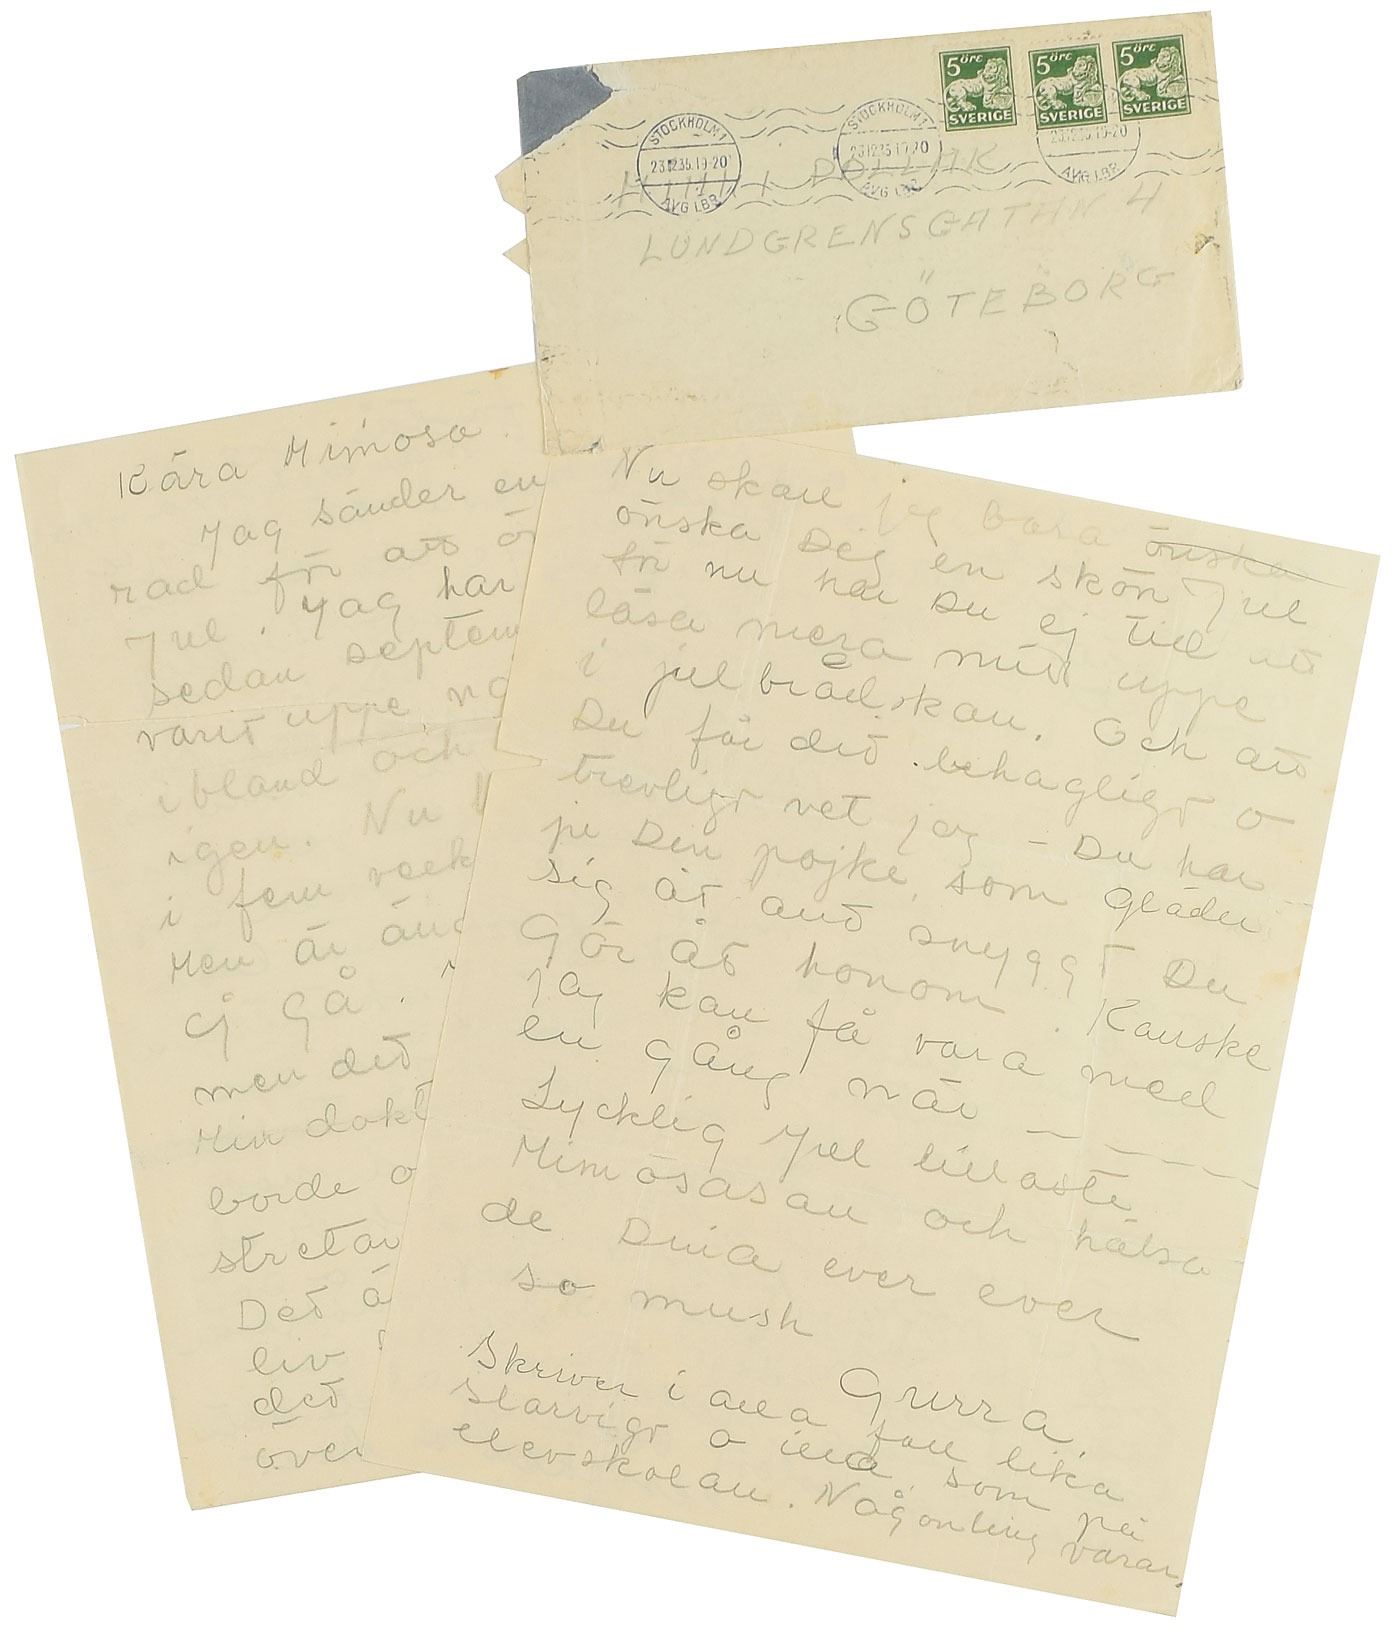 5 öre
SVERIGE
5 öre
SVERIGE
5 öre
SVERIGE
STOCKHOLM 1
23.12.35.19-20
AVG LBR
STOCKHOLM 1
23.12.35.19-20
AVG LBR
23.12.35.19-20
AVG LBR
MIMI POLLAK
LUNDGRENSGATAN 4
GÖTEBORG
Kära Mimosa.
Jag sänder en
rad för att
Jul. Jag har
sedan septem
varit uppe
ibland och
igen. Nu
i fem veck
Men är änd
ej gå.
men det
Min dokt
borde
stretar
Det ä
liv
det
över
Nu skall jag bara önska
önska Dej en skön Jul
för nu har Du ej tid att
läsa mera mitt uppe
i julbrådskan. Och att
Du får det behagligt o
trevligt vet jag – Du har
ju Din pojke, som gläder
sig åt allt snyggt Du
Gör åt honom. Kanske
Jag kan få vara med
en gång när – – – – –
Lycklig Jul lillaste
Mimosasan och hälsa
de Dina ever ever
so mush
Gurra.
Skriver i alla fall lika
slarvigt o illa, som på
elevskolan. Någonting varar.